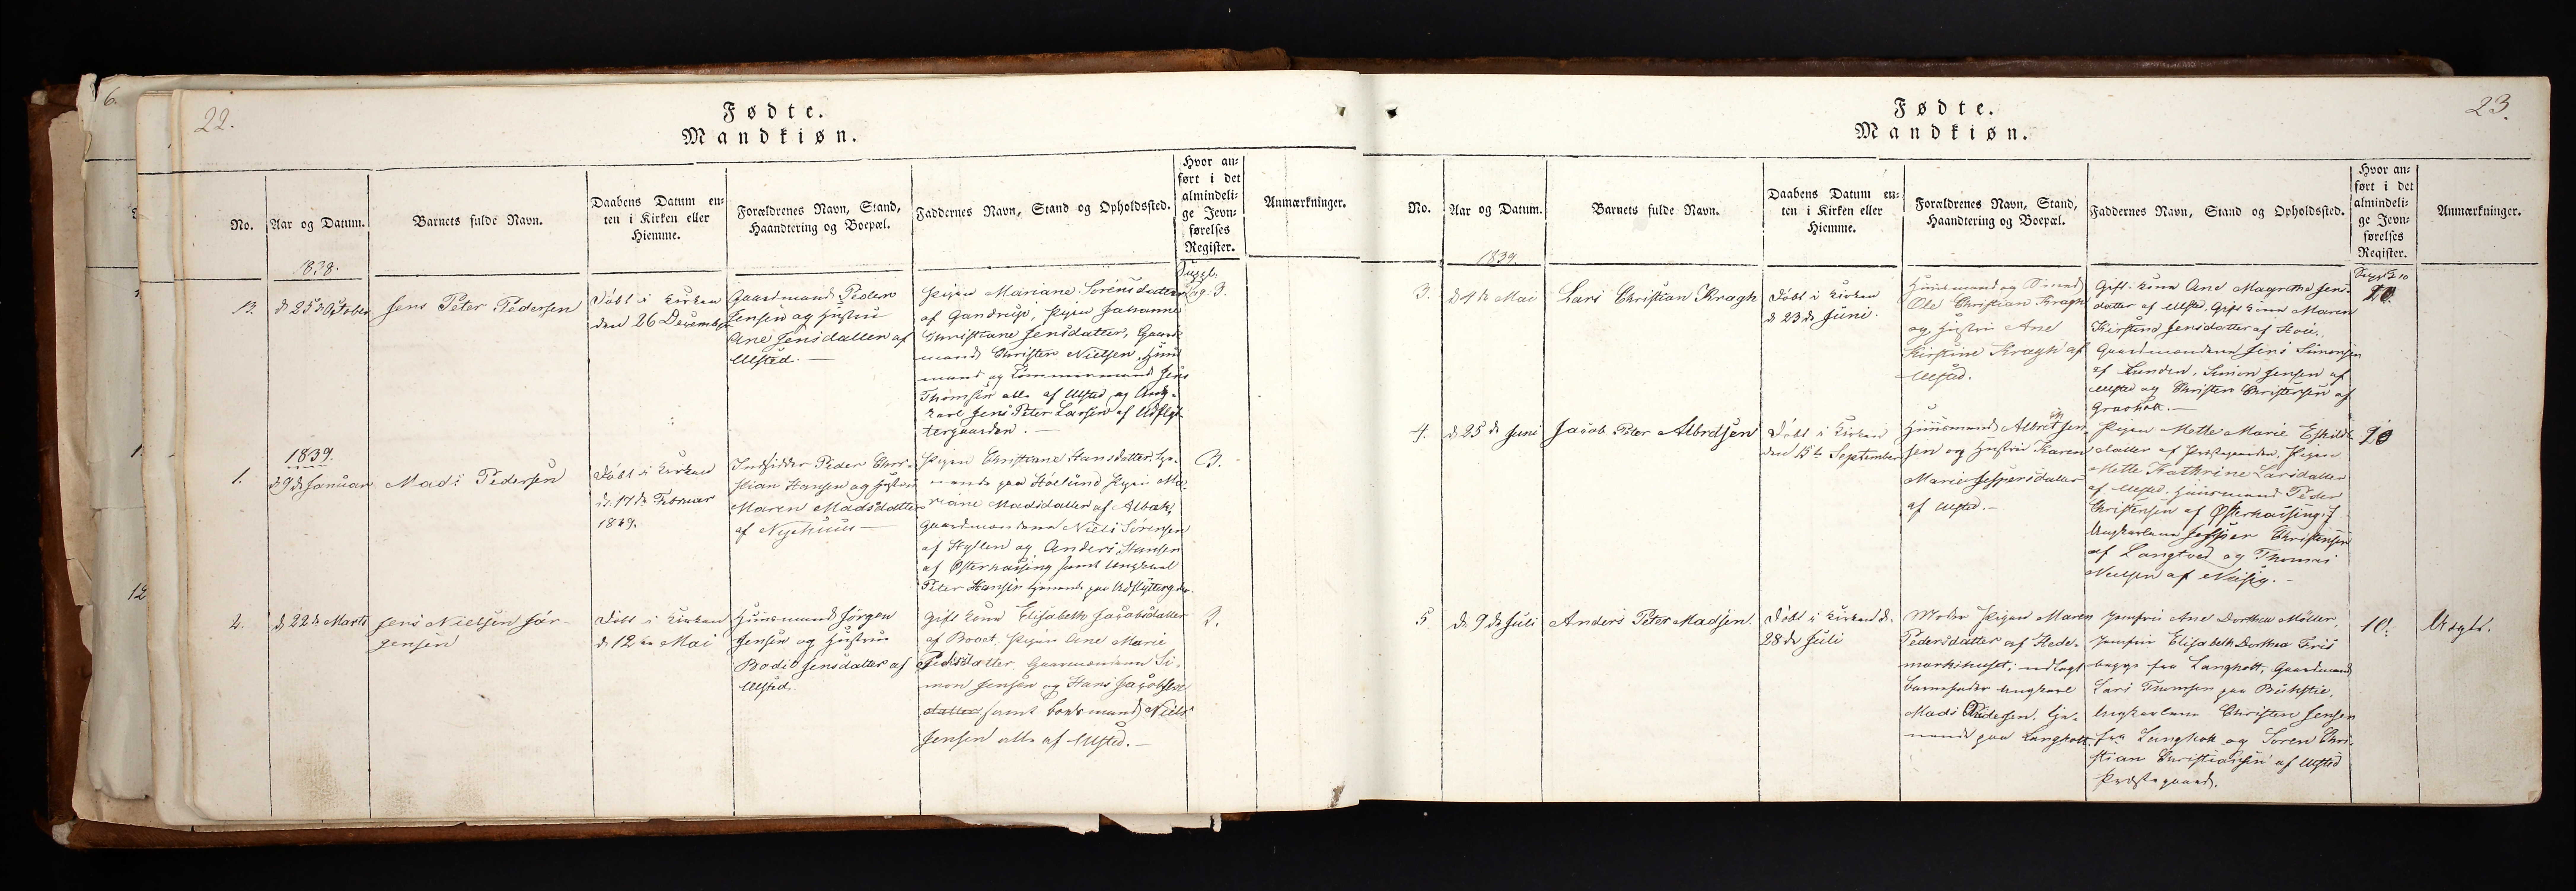 6.
22.
Fødte.
Mandkiøn.
No.
Aar og Datum.
Barnets fulde Navn.
Daabens Datum en-
ten i Kirken eller
Hiemme.
Forældrenes Navn, Stand,
Haandtering og Boepæl.
Faddernes Navn, Stand og Opholdssted.
Hvor an-
ført i det
almindeli-
ge Jevn-
førelses
Register.
Anmærkninger.
1838.
13.
d 25de October
Jens Peter Pedersen
Döbt i Kirken
den 26 December
Gaardmand Peder
Jensen og Hustru
Ane Jensdatter af
Ulsted.
Pigen Mariane Sörensdatter
af Gandrup, Pigen Johanne
Christiane Jensdatter, Gaard-
mand Christen Nielsen, Huus-
mand og Tömmermand Jens
Thomsen alle af Ulsted og Ung-
karl Jens Peter Larsen af Udflyt-
tergaarden.
Suppl.
Pag. 3.
1839.
1.
d 9de Januar
Mads Pedersen
Döbt i Kirken
d. 17de Februar
1839.
Indsidder Peder Chri-
stian Hansen og Hustru
Maren Madsdatter
af Nyehuus
Pigen Christiane Hansdatter, tje-
nende paa Höelund, Pigen Ma-
riane Madsdatter af Albæk,
Gaardmændene Niels Sörensen
af Hyllen og Anders Hansen
af Østerhassing samt Ungkarl
Peter Hansen tjenende paa Udflytterg.
3.
2.
d 22de Marts
Jens Nielsen Jör-
gensen
Döbt i Kirken
d. 12te Mai
Huusmand Jörgen
Jensen og Hustru
Bodil Jensdatter af
Ulsted.
Gift Kone Elisabeth Jacobsdatter
af Pigen Ane Marie
Pedersdatter, Gaardmændene Si-
mon Jensen og Hans Jacobsen
datter samt Niels
Jensen alle af Ulsted.
3.
23.
Fødte.
Mandkiøn.
No.
Aar og Datum.
Barnets fulde Navn.
Daabens Datum en-
ten i Kirken eller
Hiemme.
Forældrenes Navn, Stand,
Haandtering og Boepæl.
Faddernes Navn, Stand og Opholdssted.
Hvor an-
ført i det
almindeli-
ge Jevn-
førelses
Register.
Anmærkninger.
1839.
3.
d 4de Mai
Lars Christian Kragh
Döbt i Kirken
d 23de Juni.
Huusmand og Smed
Ole Christian Kragh
og Hustru Ane
Kirstine Kragh af
Ulsted.
Gift Kone Ane Magrethe Jens-
datter af Ulsted, Gift Kone Maren
Kirstine Jensdatter af Hou.
Gaardmændene Jens Simonsen
af Lunden, Simon Jensen af
Ulsted og Christen Christensen af
Gravholt.
4.
d 25de Juni
Jacob Peter Albretsen
Döbt i Kirken
den 15de September
Huusmand Albret Jen-
sen og Hustru Karen
Marie Jespersdatter
af Ulsted.
Pigen Mette Marie Eskilds-
datter af Præstegaarden, Pigen
Mette Kathrine Larsdatter
af Ulsted, Huusmand Peder
Christensen af Østerhassing,
Ungkarlene Jesper Christensen
af Langtved og Thomas
Nielsen af
10
5.
d. 9de Juli
Anders Peter Madsen.
Döbt i Kirken d.
28de Juli
Moder Pigen Maren
Pedersdatter af Hede-
markshuset; udlagt
Barnefader Ungkarl
Mads Pedersen, tje-
nende paa Langholt.
Jomfru Ane Dorthea Möller,
Jomfru Elisabeth Dorthea Friis
begge fra Langholt, Gaardmand
Lars Thomsen paa
Ungkarlene Christen Jensen
fra Langholt og Sören Chri-
stian Christiansen af Ulsted
Præstegaard.
10.
Uægte.